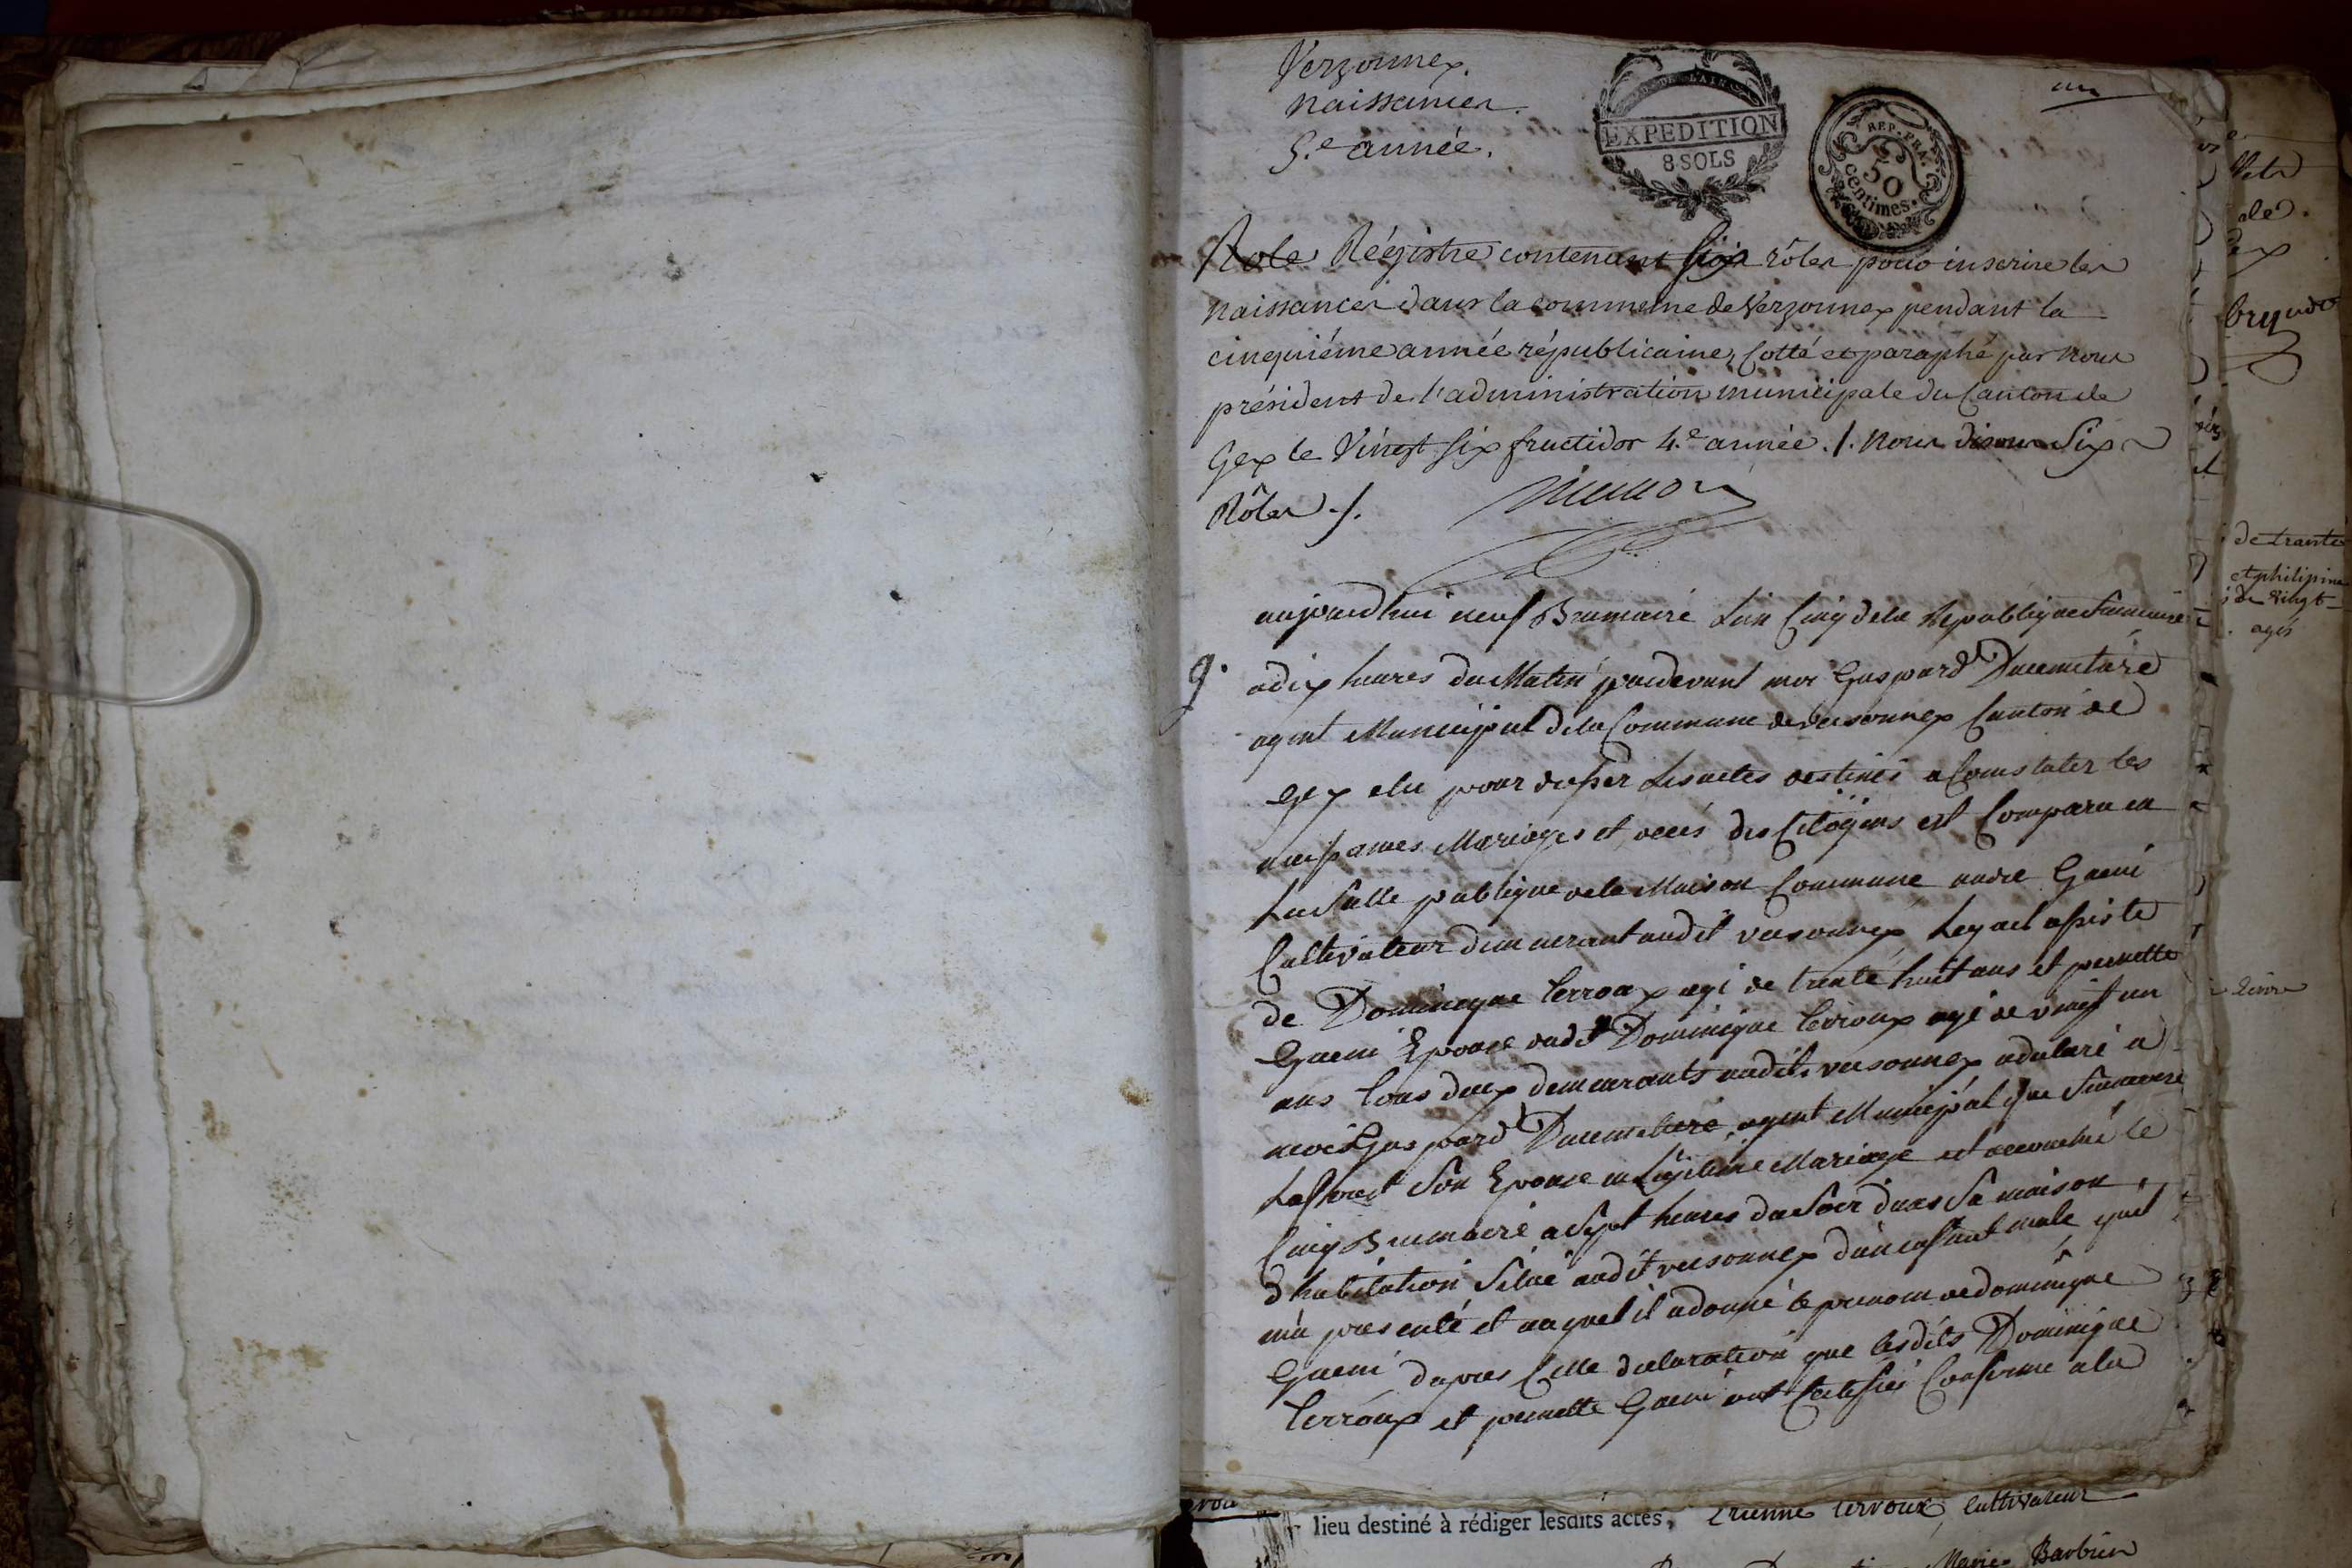 Verzonnex.
naissances.
5.e année.
un
DE L'AIN
EXPEDITION
8 SOLS
REP. FRA.
50
centimes.
Role Régistre contenant six rôles pour inscrire les
naissances dans la commune de Verzonnex pendant la
cinquième année républicaine, Cotté et paraphé par nous
président de l'administration municipale du Canton de
Gex le Vingt six fructidor 4.e année ./. nous disons Six
Rôles ./.
aujourdhui neuf Brumaire Lan Cinq dela Republique
9.
adix heures du Matin pardevant moi Gaspard Ducimetière
agent Municipal dela Commune de versonnex Canton de
gex elu pour Les actes destinés a Constater les
Mariages et décés des Citoÿens est Comparu en
La Salle publique dela Maison Commune
Cultivateur demeurant audit versonnex Lequel assisté
de Dominique Perroux agé de trente huit ans et pernette
Epouse dudit Dominique Perroux agé de vingt un
ans tous deux demeurants audit versonnex a déclaré a
moi Gaspard Ducimetiere agent Municipal que
Son Epouse en Légitime Mariage est accouchée le
Cinq Brumaire a Sept heures du Soir dans Sa maison
d'habitation Situé audit versonnex d'un enfant male quil
m'a presenté et auquel il a donné le prenom de dominique
dapres Cette declaration que lesdits Dominique
Perroux et pernette ont Certifiés Conforme ala
de trante
et philipine
de vingt
agés
lieu destiné à rédiger lesdits actes, Etienne Perroux, Cultivateur
Marie Barbier